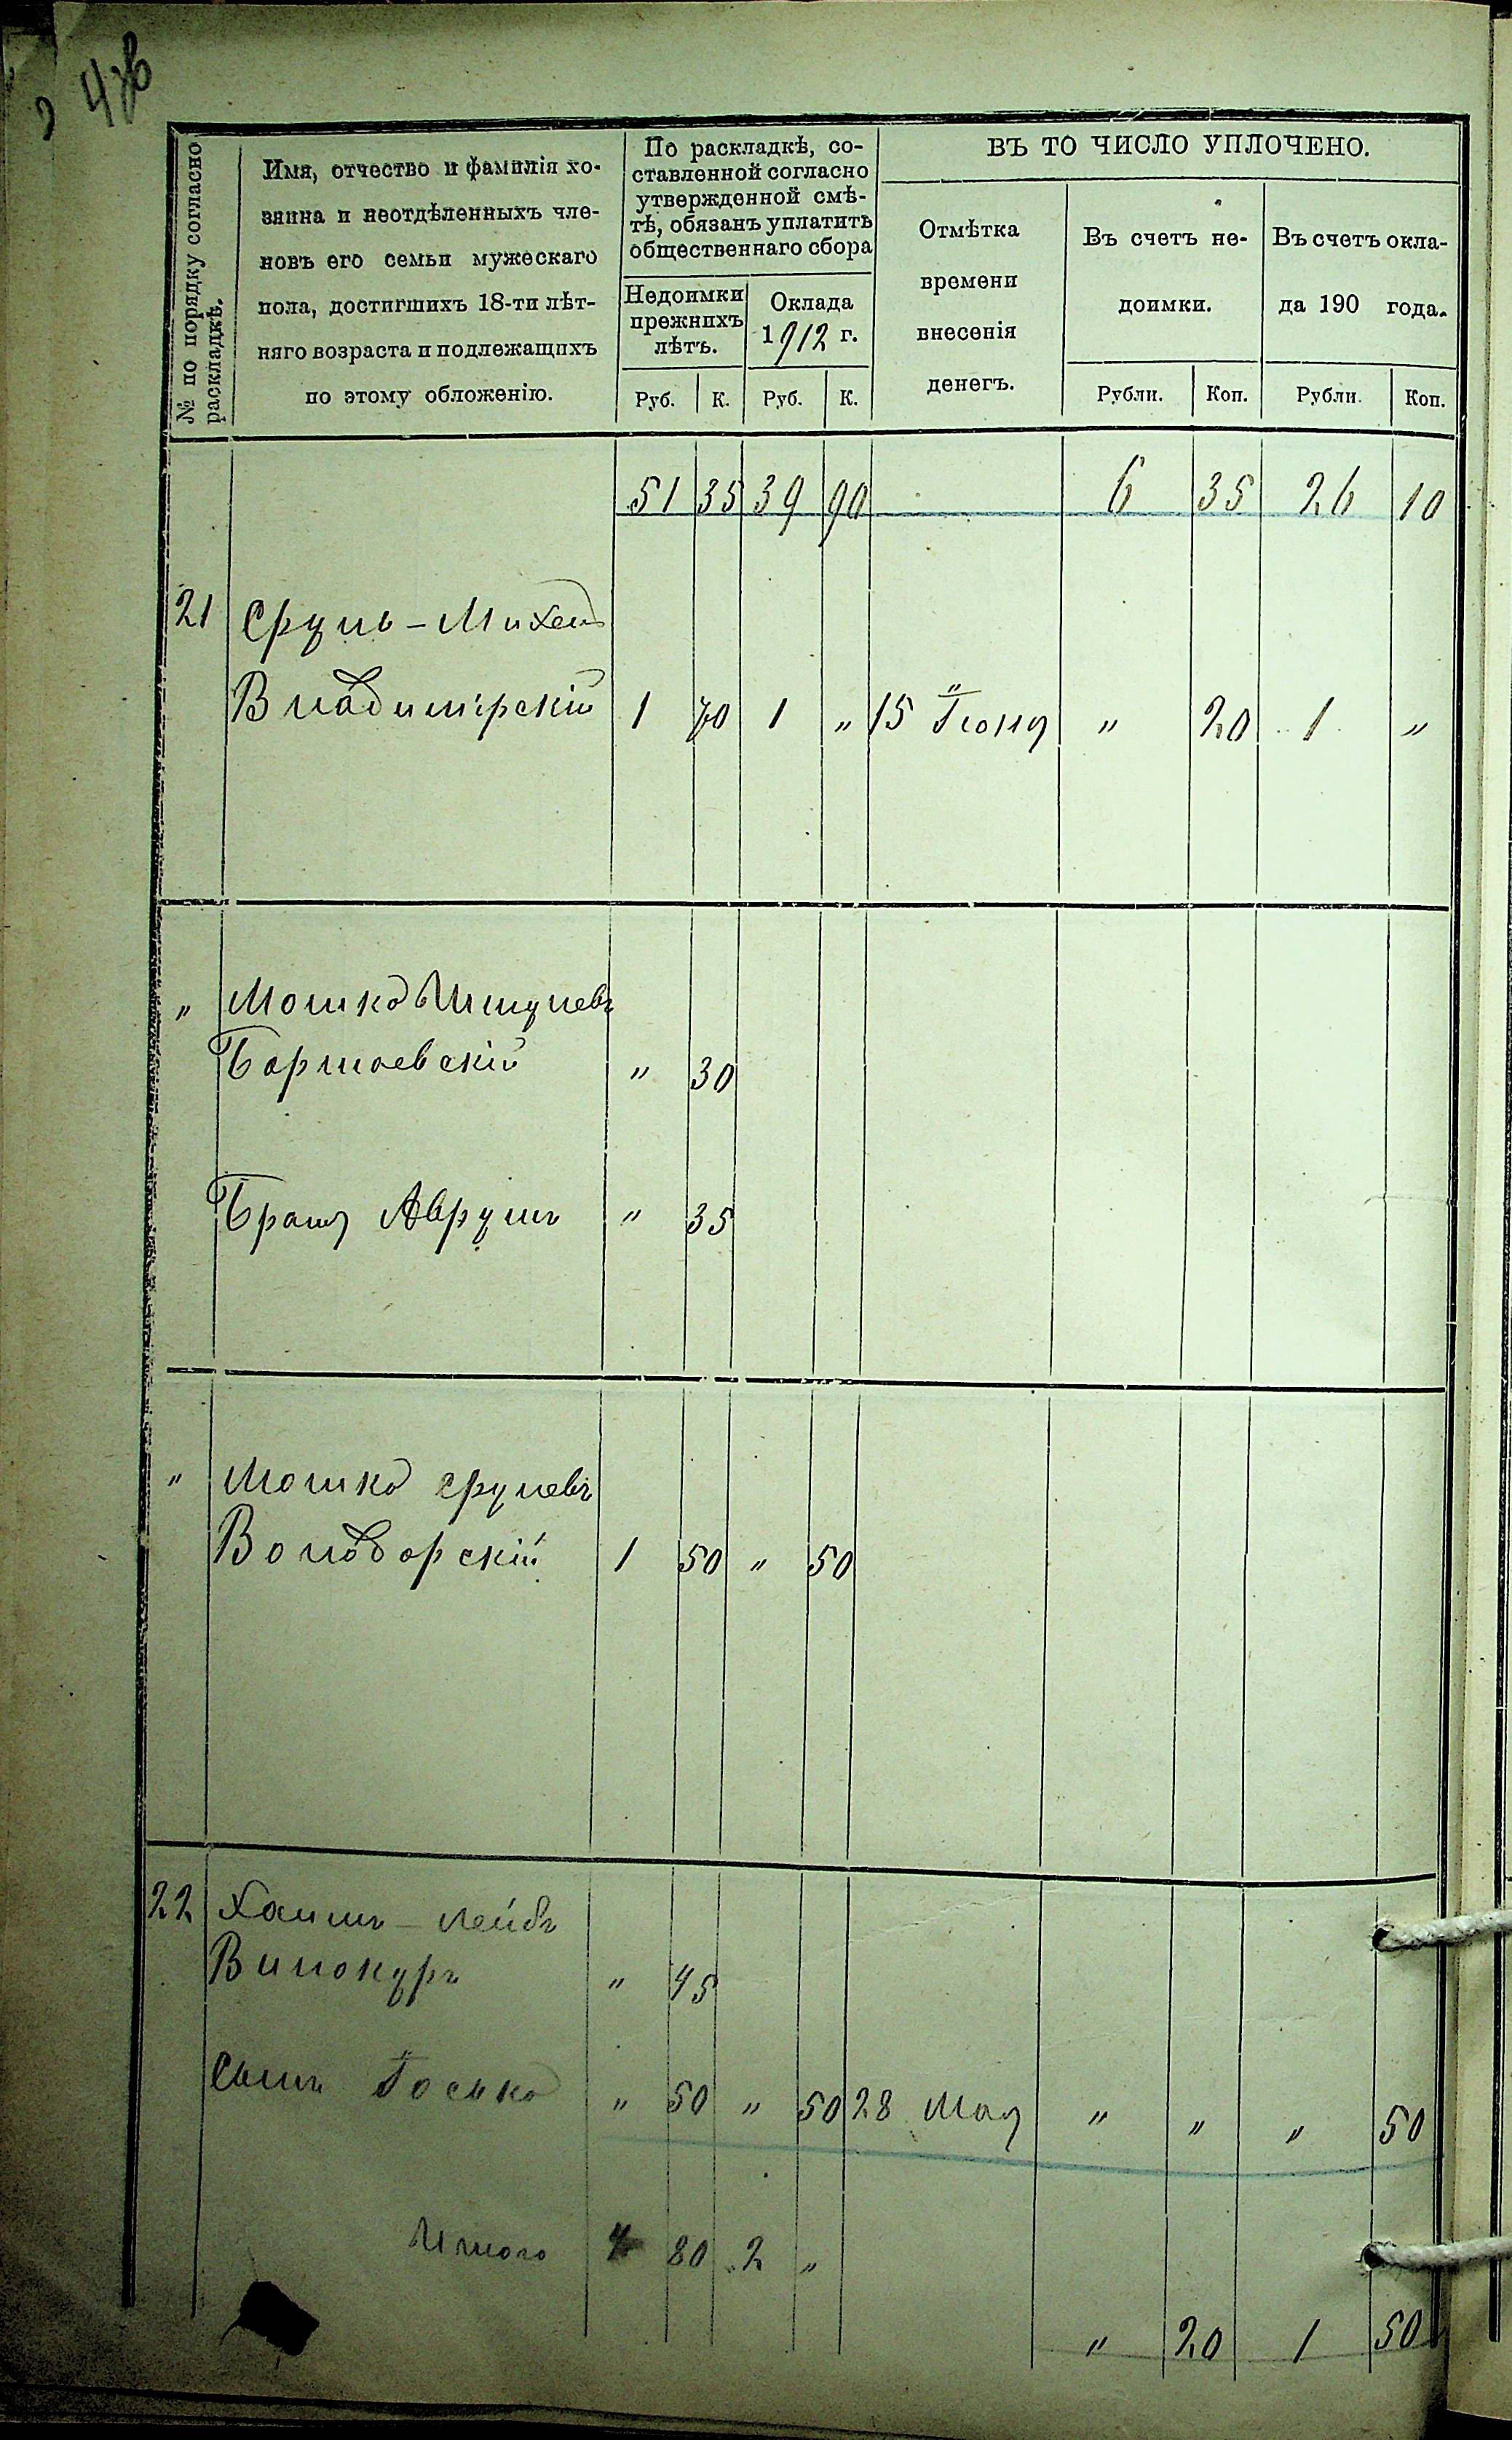 № по порядку согласно раскладкѣ.
Имя, отчество и фамилія хо-
зяина и неотдѣленныхъ чле-
новъ его семьи мужескаго
пола, достигшихъ 18-ти лѣт-
няго возраста и подлежащихъ
по этому обложенію.
По раскладкѣ, со-
ставленной согласно
утвержденной смѣ-
тѣ, обязанъ уплатить
общественнаго сбора
Недоимки
прежнихъ
лѣтъ.
Оклада
1912 г.
Руб. К. Руб. К.
ВЪ ТО ЧИСЛО УПЛОЧЕНО.
Отмѣтка
времени
внесенія
денегъ.
Въ счетъ не-
доимки.
Рубли. Коп.
Въ счетъ окла-
да 190 года.
Рубли. Коп.
51 35 39 90 6 35 26 10
21 Сруль-Михель
Владимірскій 1 70 1 " 15 Іюня " 20 1 "
" Мошко
Боршовскій " 30
Братъ Аврумъ " 35
" Мошко Срулевъ
Володорскій 1 50 " 50
22 Хаимъ-Лейбъ
Винокуръ " 45
Сынъ Іосько " 50 " 50 28 Мая " " " 50
Итого 4 80 2 "
" 20 1 50